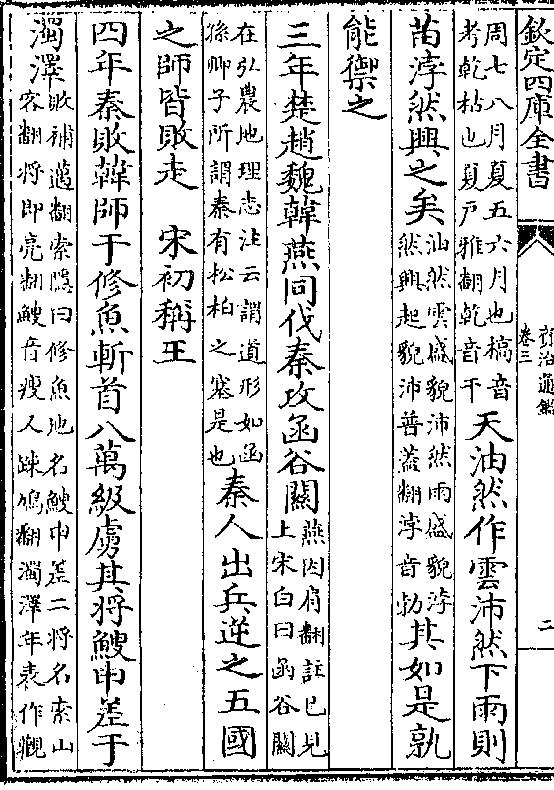 欽定四庫全書
資治通鑑
卷三
二
周七八月夏五六月也槁音
考乾枯也夏戸雅翻乾音干
天油然作雲沛然下雨則
苗浡然興之矣
油然雲盛貌沛然雨盛貌浡
然興起貌沛普蓋翻浡音勃
其如是孰
能禦之
三年楚趙魏韓燕同伐秦攻函谷關
燕因肩翻註已見
上宋白曰函谷關
在弘農地理志注云謂道形如函
孫卿子所謂秦有松柏之塞是也
秦人出兵逆之五國
之師皆敗走　宋初稱王
四年秦敗韓師于修魚斬首八萬級虜其將䱸申差于
濁澤
敗補邁翻索隱曰修魚地名䱸申差二將名索山
客翻將即亮翻䱸音瘦又踈鳩翻濁澤年表作觀